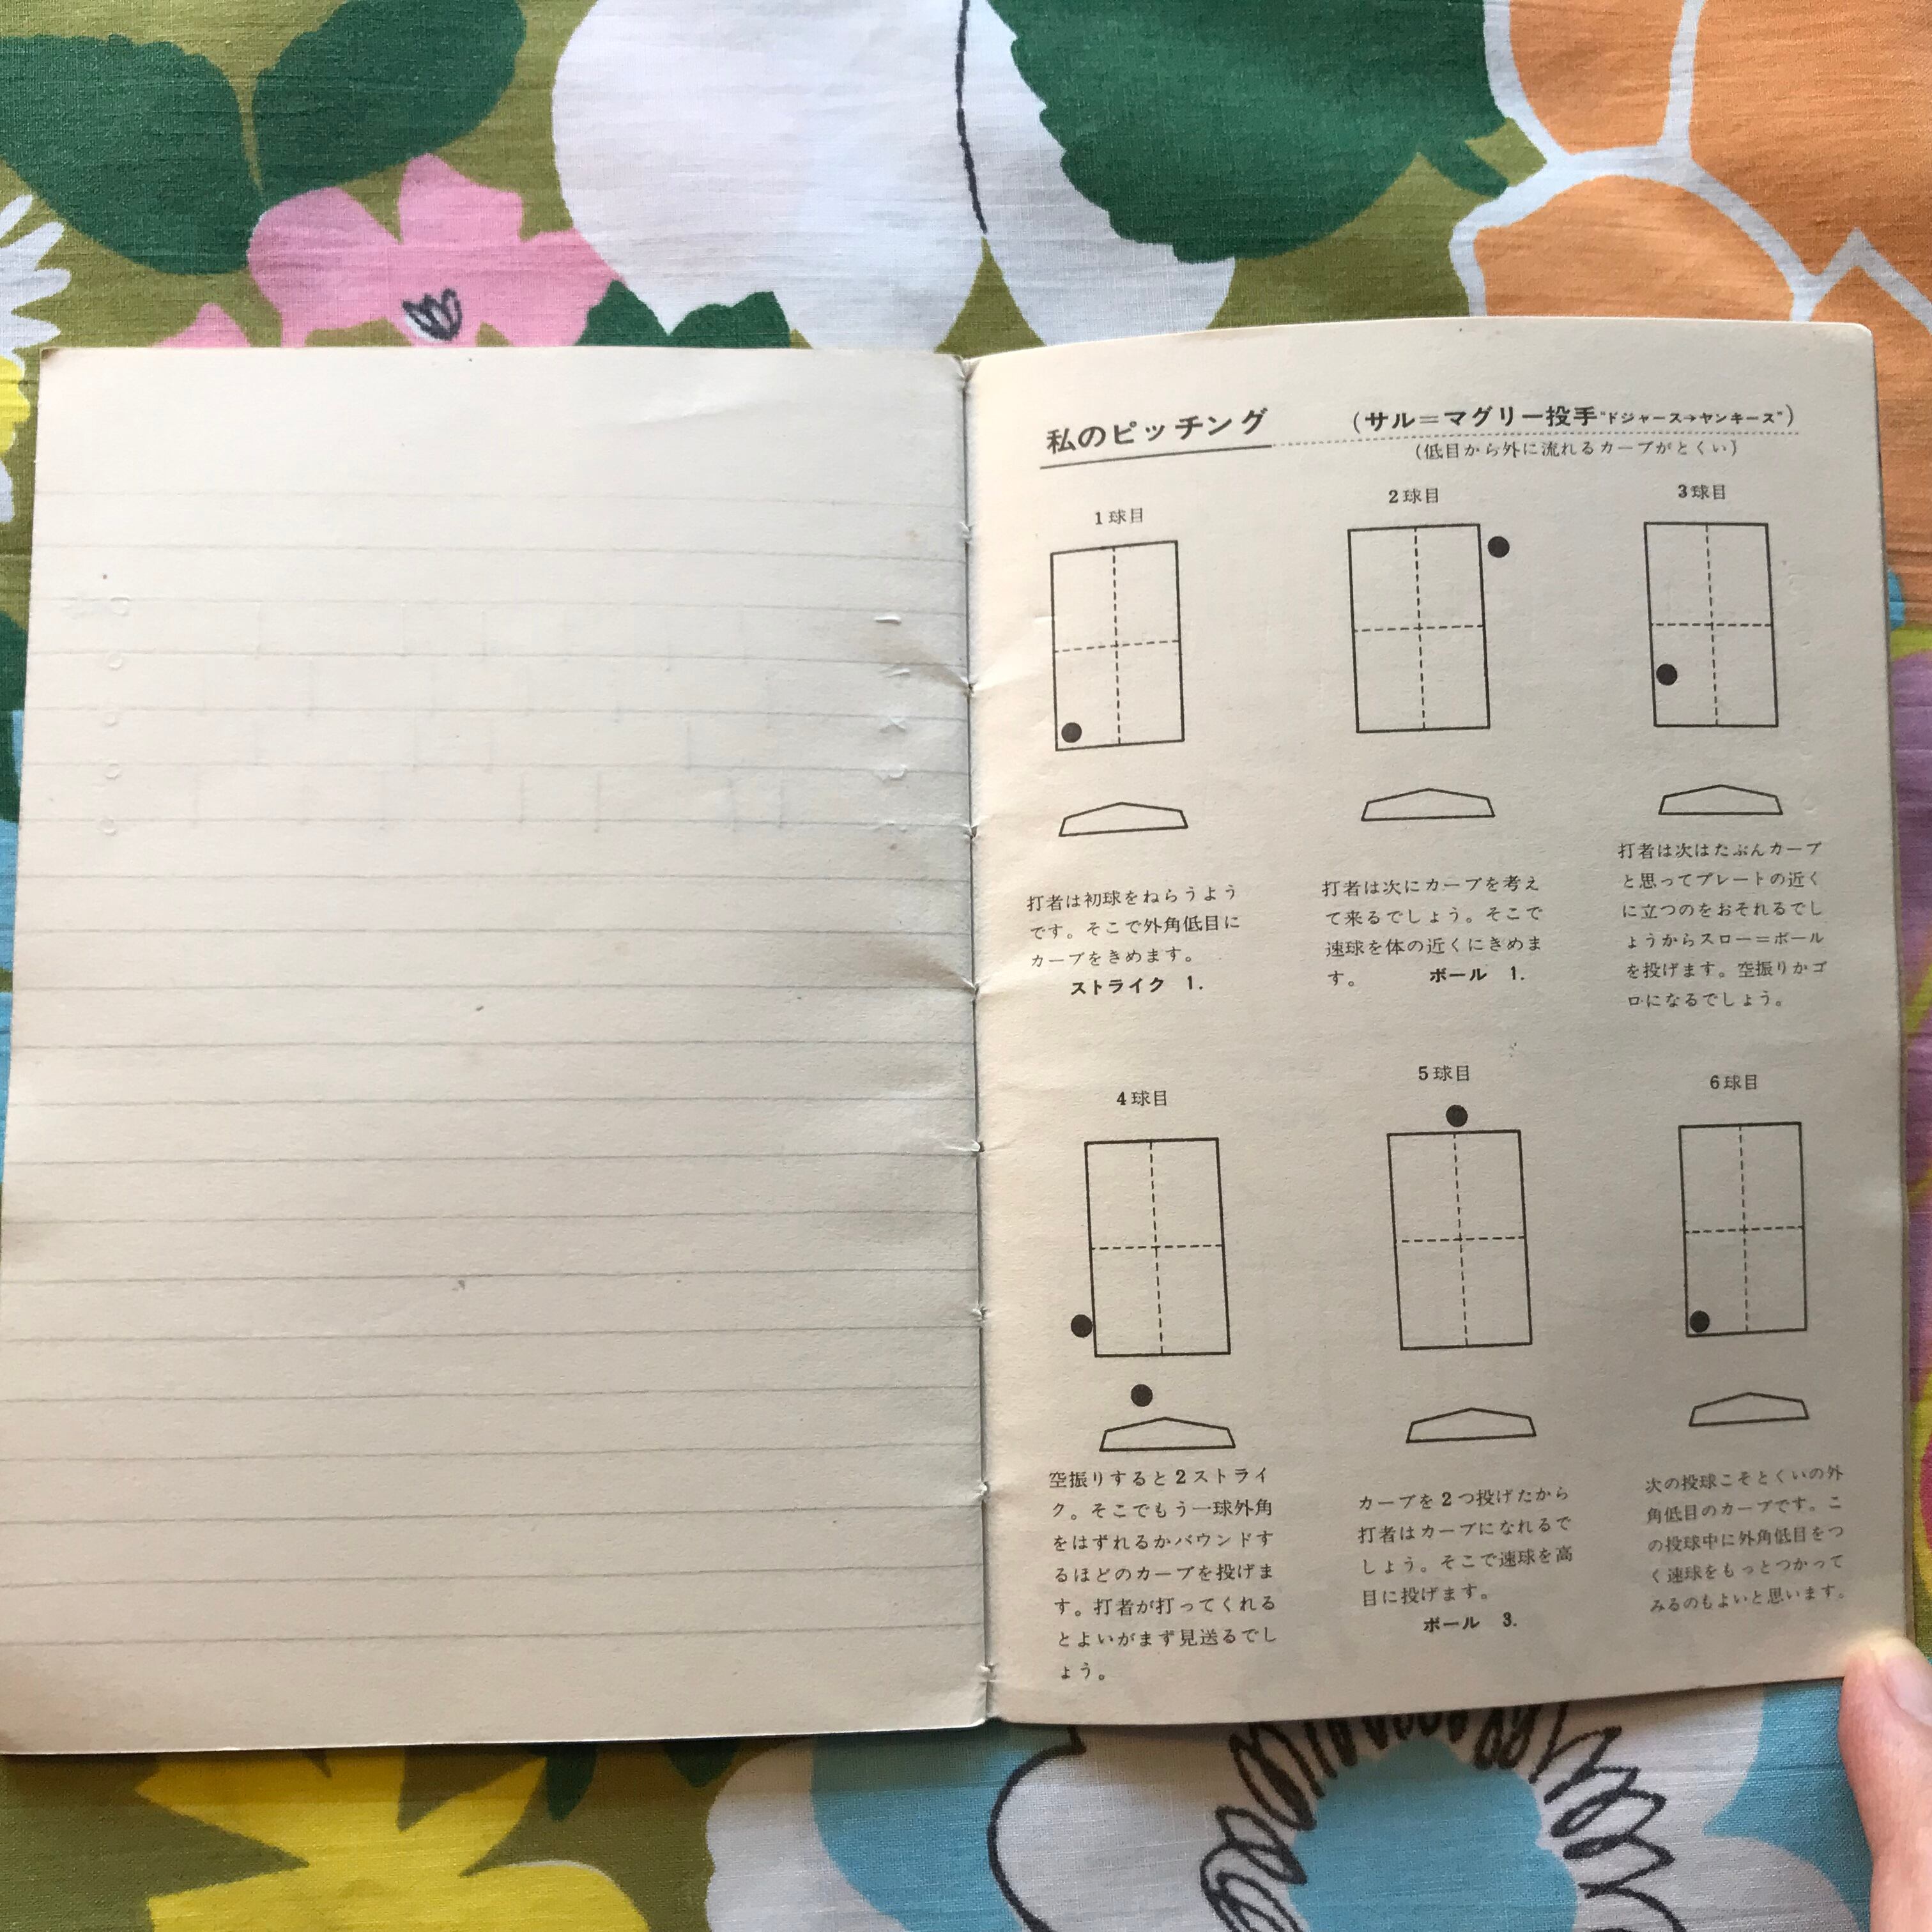 私のピッチング
(サル=マグリー投手"ドジャース→ヤンキース")
(低目から外に流れるカーブがとくい)
1球目
打者は初球をねらうよう
です。そこで外角低目に
カーブをきめます。
ストライク 1.
2球目
打者は次にカーブを考え
て来るでしょう。そこで
速球を体の近くにきめま
す。 ボール 1.
3球目
打者は次はたぶんカーブ
と思ってプレートの近く
に立つのをおそれるでし
ょうからスロー=ボール
を投げます。空振りかゴ
ロになるでしょう。
4球目
空振りすると2ストライ
ク。そこでもう一球外角
をはずれるかバウンドす
るほどのカーブを投げま
す。打者が打ってくれる
とよいがまず見送るでし
ょう。
5球目
カーブを2つ投げたから
打者はカーブになれるで
しょう。そこで速球を高
目に投げます。
ボール 3.
6球目
次の投球こそとくいの外
角低目のカーブです。こ
の投球中に外角低目をつ
く速球をもっとつかって
みるのもよいと思います。